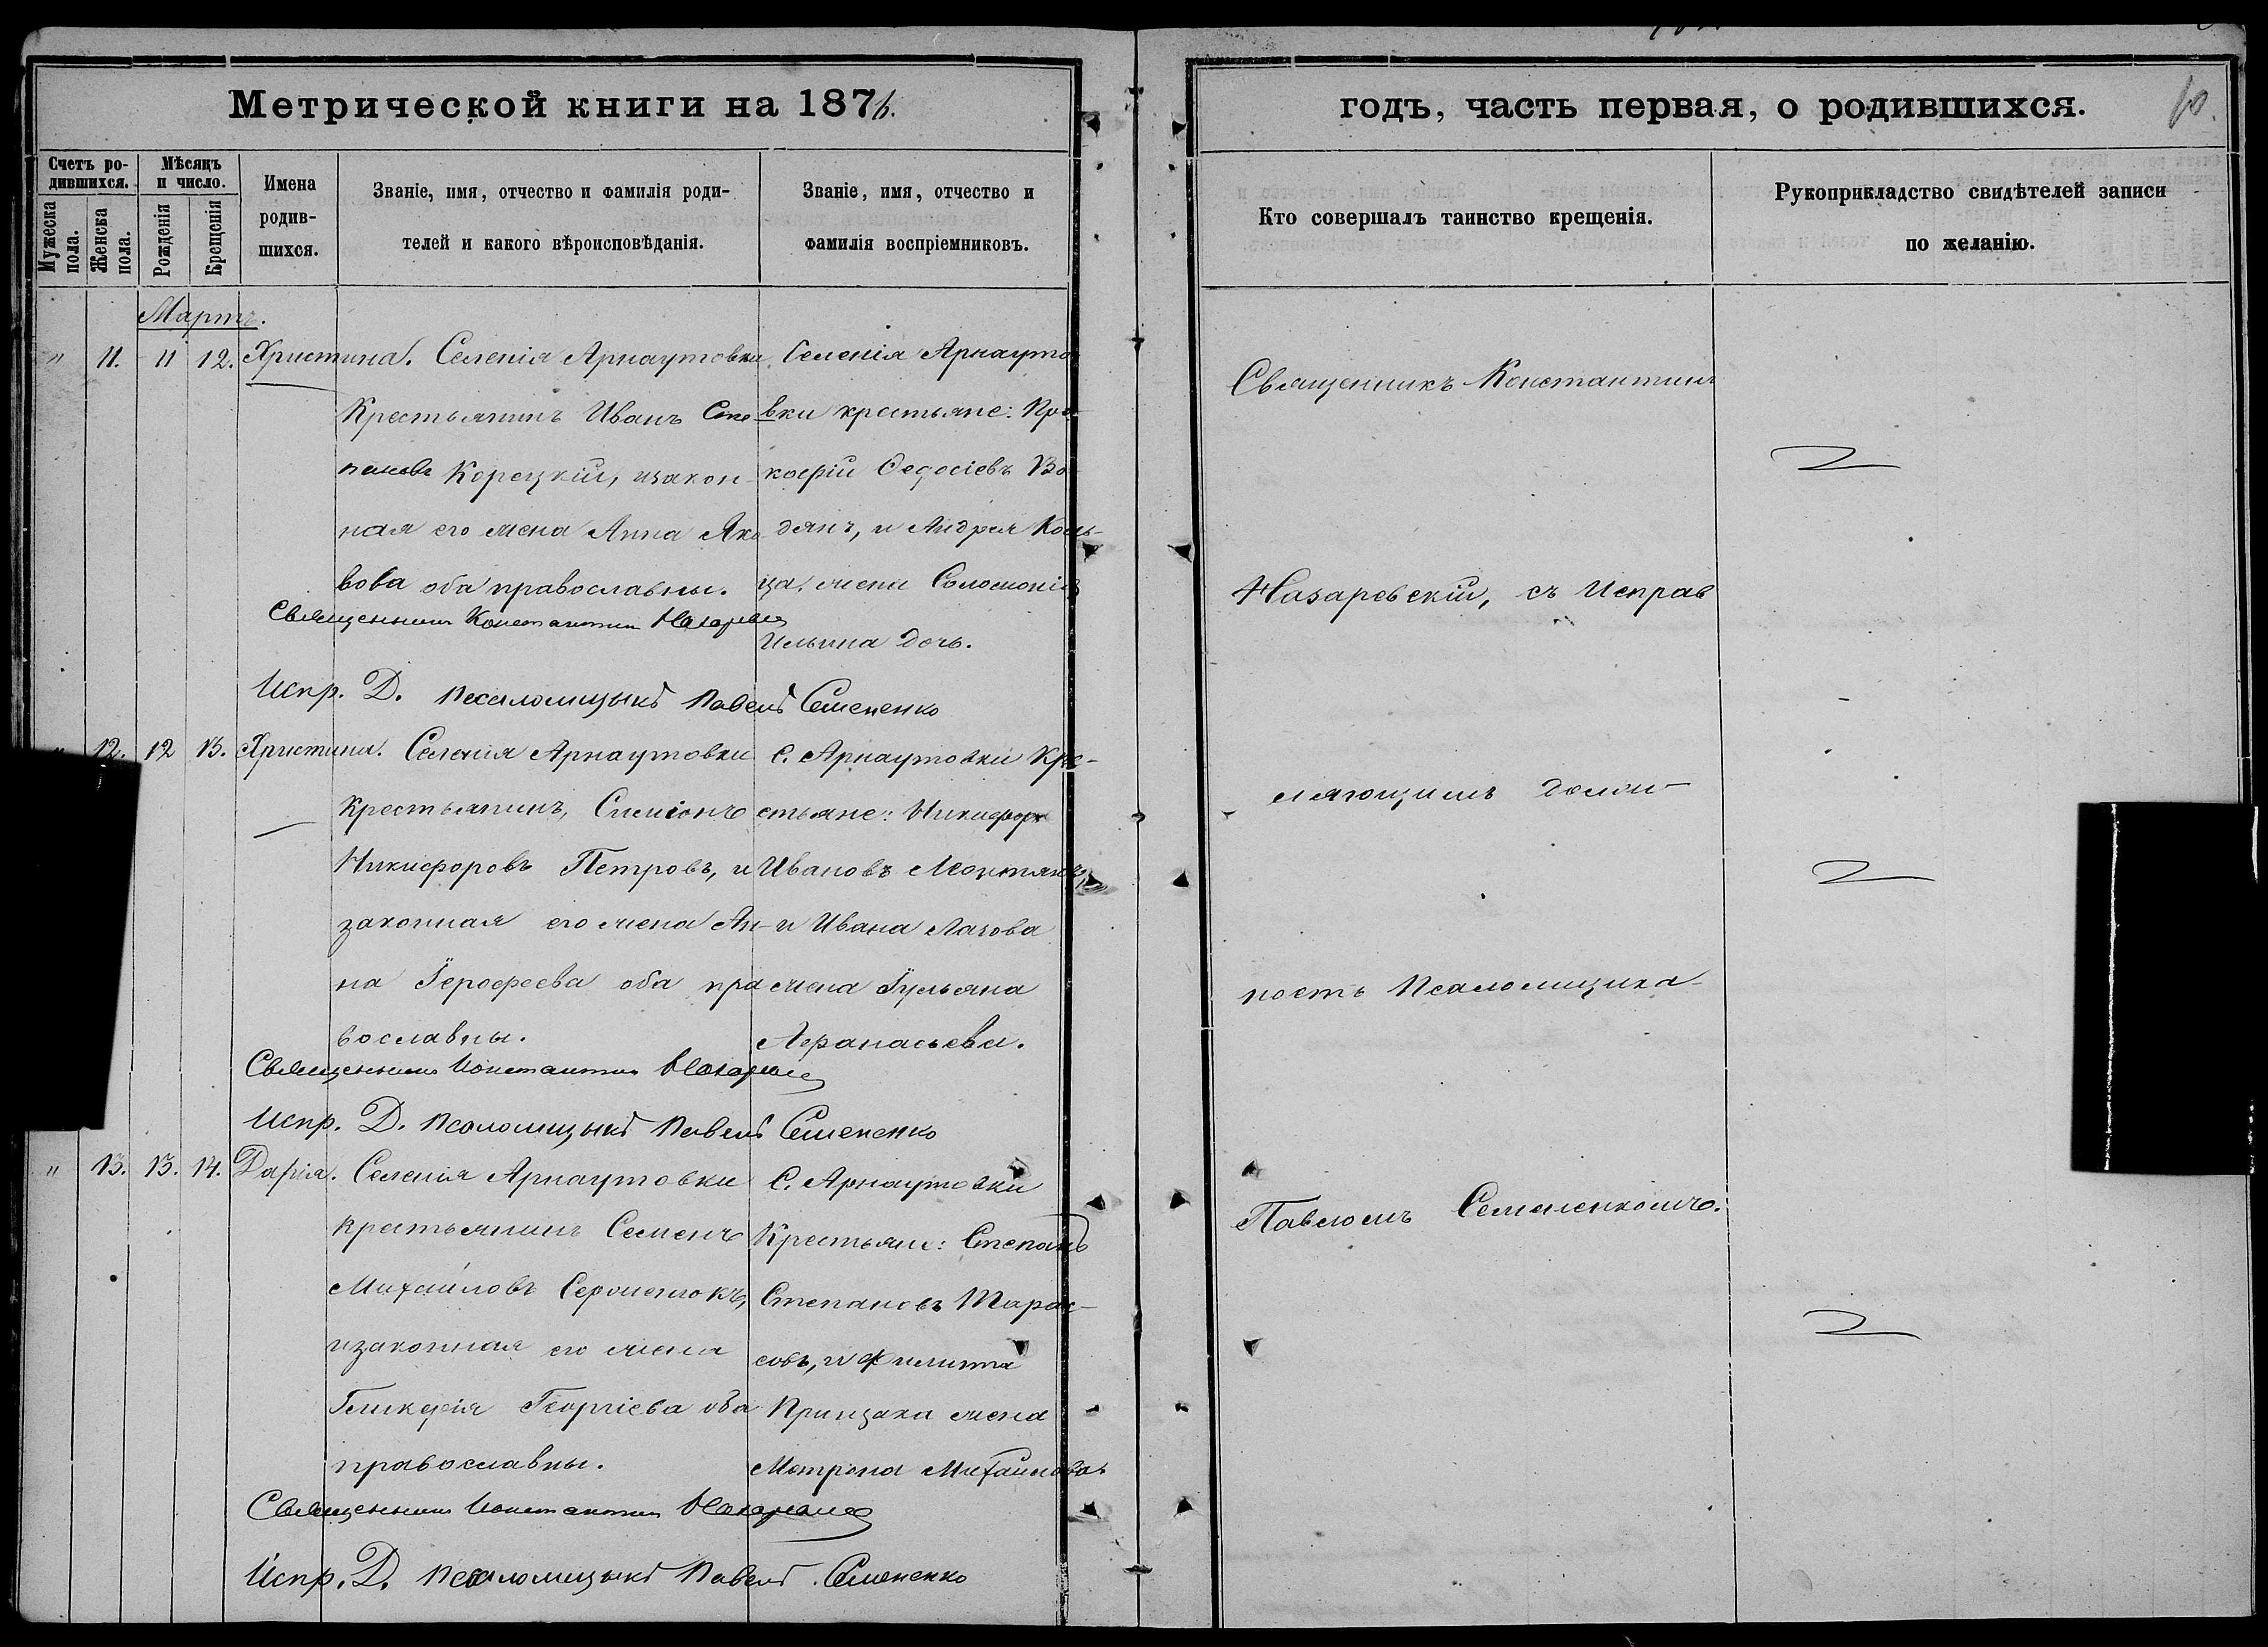 Метрической книги на 1876.
годъ, часть первая, о родившихся.
10.
Счетъ ро-
дившихся.
Мужеска
пола.
Женска
пола.
Мѣсяцъ
и число.
Рожденія
Крещенія
Имена
родив-
шихся.
Званіе, имя, отчество и фамилія роди-
телей и какого вѣроисповѣданія.
Званіе, имя, отчество и
фамилія воспріемниковъ.
Кто совершалъ таинство крещенія.
Рукоприкладство свидѣтелей записи
по желанію.
Мартъ.
" 11. 11 12. Христина.
Селенія Арнаутовки
Крестьянинъ Иванъ Сте
пановъ Корецкій, изакон-
ная его жена Анна Яко
вова оба православны.
Селенія Арнауто
вки крестьяне: Про
кофій Ѳедосіевъ Во
дянъ, и Андрея
жена Соломонія
Ильина дочь.
Священникъ Константинъ
Испр. Д. Псаломщыкъ Павелъ Семененко
" 12. 12 13. Христина.
Селенія Арнаутовки
Крестьянинъ, Симіонъ
Никифоровъ Петровъ, и
законная его жена Ан-
на Іерофеева оба пра
вославны.
С. Арнаутовки Кре-
стьяне: Никифоръ
Ивановъ
и Ивана Лазова
жена Іульяна
Афанасьева.
Священникъ Константинъ
Испр. Д. Псаломщыкъ Павелъ Семененко
" 13. 13. 14. Дарія.
Селенія Арнаутовки
крестьянинъ Семенъ
Михайловъ
изаконная его жена
Гликерія Георгіева оба
православны.
С. Арнаутовки
Крестьяне: Степанъ
Степановъ Тарас-
совъ, и Филипа
жена
Матрона Михайлова
Священникъ Константинъ
Испр. Д. Псаломщыкъ Павелъ Семененко
Священникъ Константинъ
Назаревскій, съ Исправ
ляющимъ долж-
ность Псаломщика
Павломъ Семененкомъ.